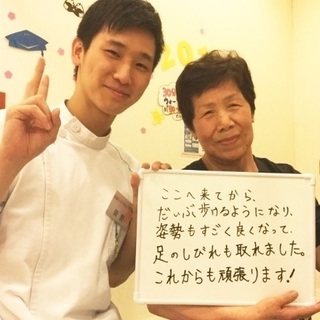 ここへ来てから、
だいぶ歩けるようになり、
姿勢もすごく良くなって、
足のしびれも取れました。
これからも頑張ります!